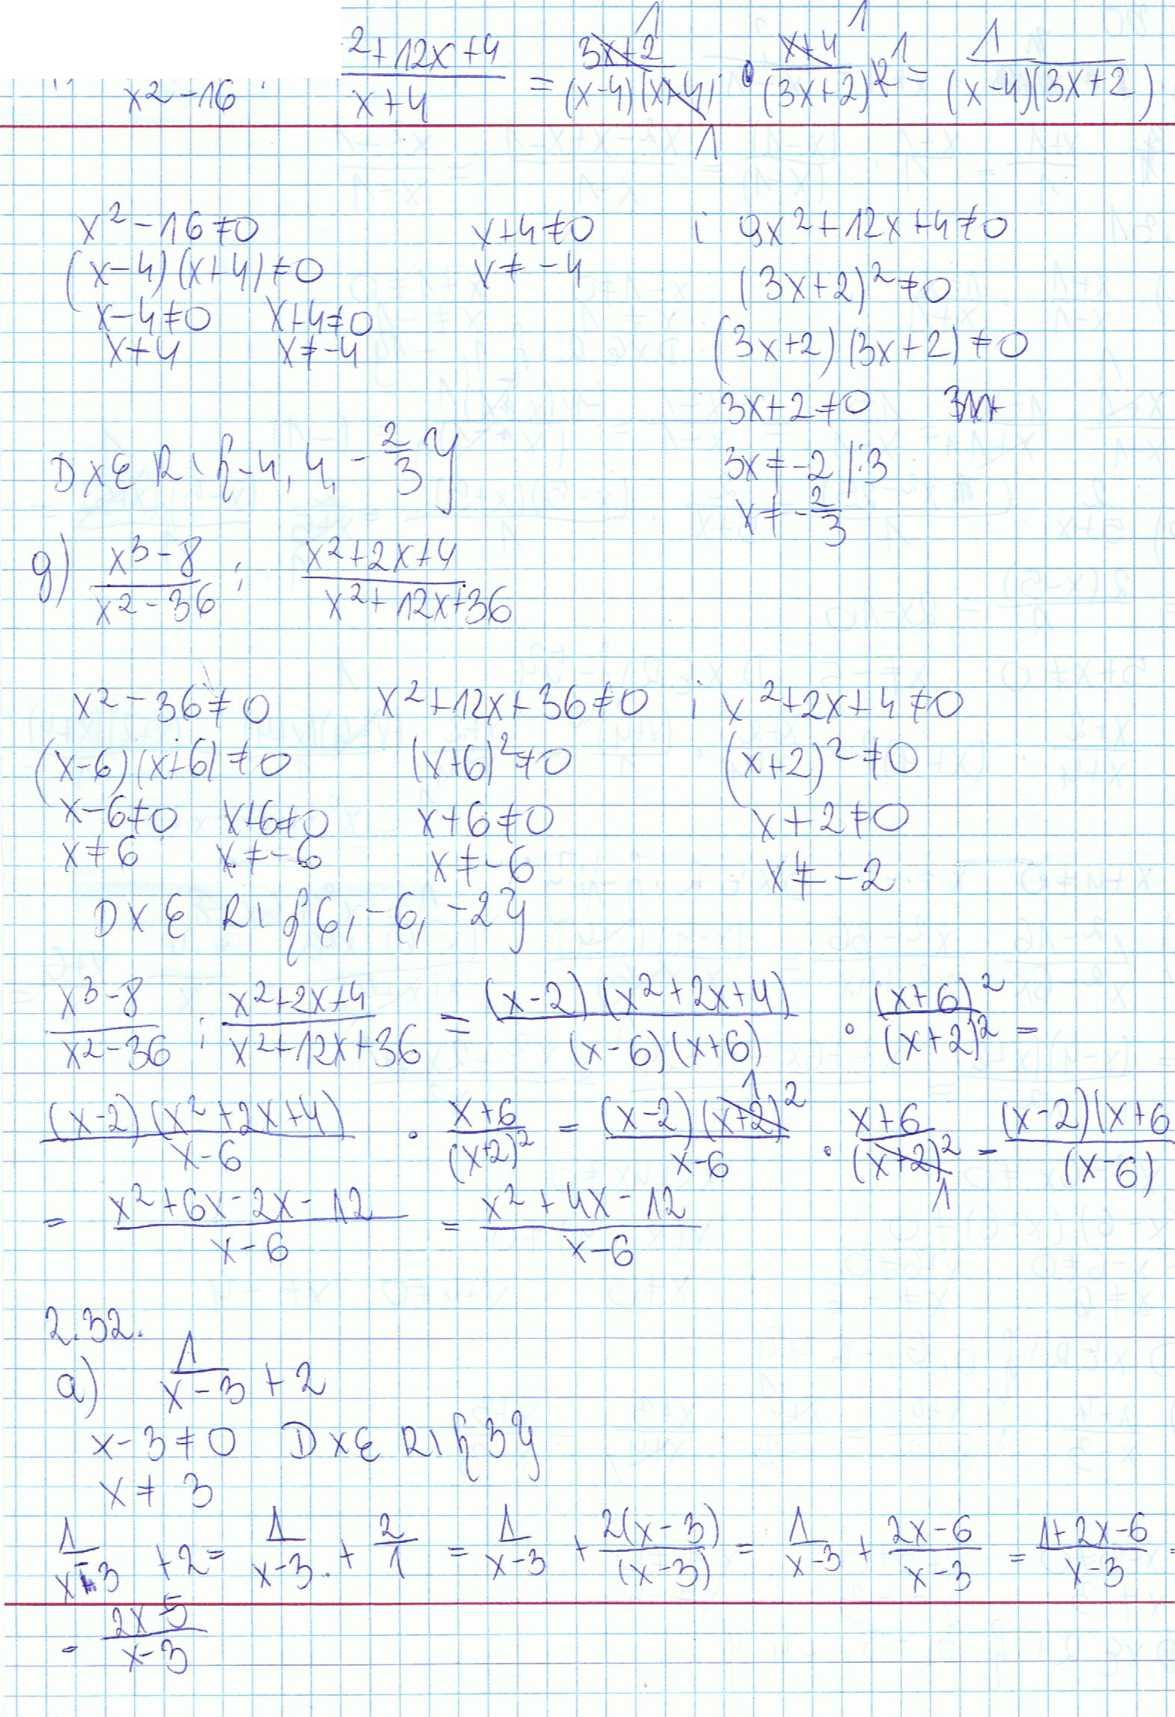 x² - 16 : ²+12x+4 / x+4 = 3x+2 / (x-4)(x+4) · x+4 / (3x+2)² = 1 / (x-4)(3x+2)
x² - 16 ≠ 0 x+4 ≠ 0 i 9x²+12x+4 ≠ 0
(x-4)(x+4) ≠ 0 x ≠ -4 (3x+2)² ≠ 0
x-4 ≠ 0 x+4 ≠ 0 (3x+2)(3x+2) ≠ 0
x ≠ 4 x ≠ -4
3x+2 ≠ 0
D x ∈ R \ {-4, 4, -2/3} 3x ≠ -2 |:3
x ≠ -2/3
g) x³-8 / x²-36 : x²+2x+4 / x²+12x+36
x²-36 ≠ 0 x²+12x+36 ≠ 0 i x²+2x+4 ≠ 0
(x-6)(x+6) ≠ 0 (x+6)² ≠ 0 (x+2)² ≠ 0
x-6 ≠ 0 x+6 ≠ 0 x+6 ≠ 0 x+2 ≠ 0
x ≠ 6 x ≠ -6 x ≠ -6 x ≠ -2
D x ∈ R \ {6, -6, -2}
x³-8 / x²-36 : x²+2x+4 / x²+12x+36 = (x-2)(x²+2x+4) / (x-6)(x+6) · (x+6)² / (x+2)² =
(x-2)(x²+2x+4) / x-6 · x+6 / (x+2)² = (x-2)(x+2)² / x-6 · x+6 / (x+2)² = (x-2)(x+6 / (x-6)
= x²+6x-2x-12 / x-6 = x²+4x-12 / x-6
2.32.
a) 1 / x-3 + 2
x-3 ≠ 0 D x ∈ R \ {3}
x ≠ 3
1 / x-3 + 2 = 1 / x-3 + 2 / 1 = 1 / x-3 + 2(x-3) / (x-3) = 1 / x-3 + 2x-6 / x-3 = 1+2x-6 / x-3 =
= 2x-5 / x-3